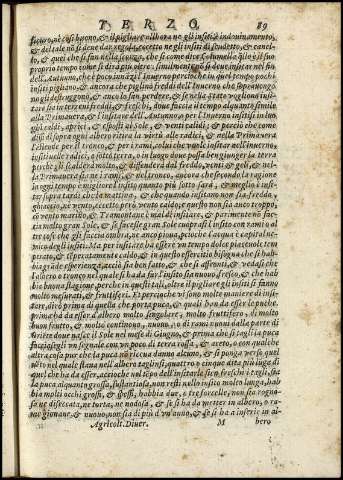 TERZO. 89
sicuro, ne così buono, & il pigliare allhora ne gli insiti è indovinamento,
& del tale nõ si deve dar regola, eccetto ne gli insiti di scudetto, & canel-
lo, & quei che si fan nella scorza, che
proprio tempo come si dirà più oltre: similmente nõ si deve insitar nel fin
dell'Autunno, che è poco innãzi l'Inuerno percioche in quel tempo pochi
insiti pigliano, & ancora che piglino freddi dell'Inuerno che sopravengõ
no gli distruggono, & ancho li fan perdere, & se nella State vogliono insi-
tare sia in terreni freddi, & freschi, dove faccia il tempo alquanto simile
alla Primavera, & l'insitare dell'Autunno, & per l'Inuerno insitisi in luo
ghi caldi, aprici, & esposti al Sole, & venti calidi, & perciò che come
dißi di sopra ogni albero ritira la virtù alle radici, & nella Primavera
l'estende per il tronco, & per i rami, colui che vuole insitar nell'inuerno,
insiti uelle radici, & sotto terra, o in luogo dove possa ben giunger la terra
perche gli scalderà molto, & diffenderà dal freddo, venti, & gelo, & nel-
la Primavera
in ogni tempo è migliore l'insito quanto più sotto sarà, & meglio è insi-
ter sopra tardi che la mattina, & che quando insitano non sia freddo,
ghiaccio, ne vento, eccetto però vento caldo, & questo non sia anco troppo,
cõ vento marino, & Tramontano è mal'd insitare, & parimente nõ fac-
cia molto gran Sole, & se facesse gran Sole cuoprasi l'insito con rami o al
tre cose che gli faccia ombra, ne anco piova, perciò che l'acqua è capital ne-
mico degli insiti. Ma per insitar ha essere vn tempo dolce piacevole tem
perato, & temperatamente caldo, & in questo essercitio bisogna che si hab-
bia grãde esperienza, acciò sia ben fatto, & che si affronti, & vedasi che
l'albero o tronco nel quale si ha da far l'insito sia nuovo, fresco, & che hab-
bia buona stagione, perche in questi tali, oltre il pigliare gli insiti si fanno
molto maturati, & fruttiferi. Et percioche vi sono molte maniere di insi-
tare, dirò prima di quella che porta puca, & qual buona da essere la puche.
prima ha da esser d'albero molto singolare, molto fruttifero, di molto
buon frutto, & molto continovo, nuovo, o di rami nuovi dalla parte di
dietro dove nasce il Sole nel mese di Giugno, & prima che si cogli la puca
facciasegli vn segnale con vn poco di terra rossa, & aceto, o con qualche
altra cosa pur che la puca non riceua danno alcuno, & si ponga verso quel
vẽto nel quale stava nell'albero tagliisi quattro o cinque dita più lũga di
quel che ha da esser, acciochè nel tẽpo dell'insitarle sien freschi i tagli, sia
la puca alquanto grossa, sustantiosa, non resti nello insito molto lunga, hab
bia molti occhi grossi, & spessi, habbia due, o tre forcelle, non sia rogno-
sa ne disseccata, ne torta, ne nodosa, & se si ha da metter in albero, o ra-
mo giovane, & nuovo, non sia di più d'vn'anno, & se si ha a inserir in al-
Agricolt. Diver. M bero